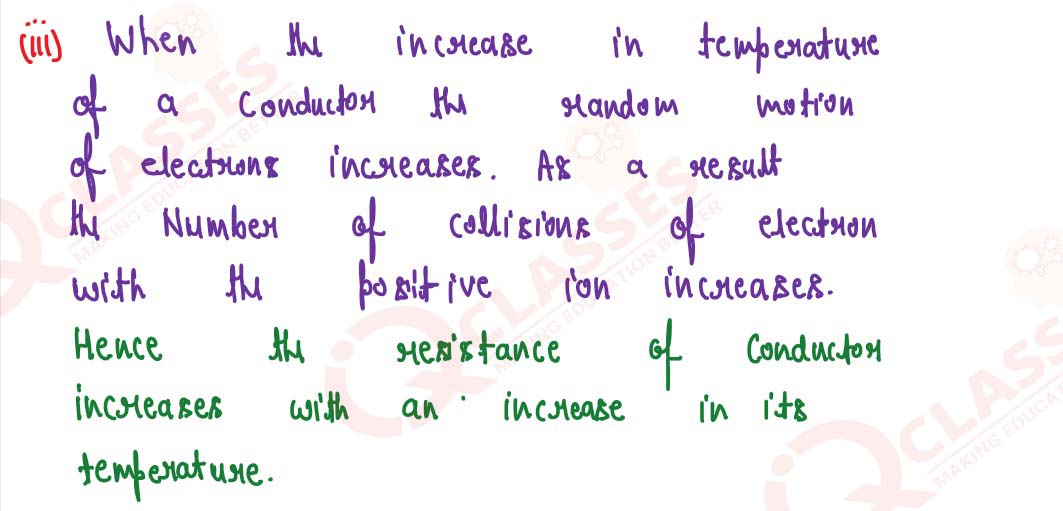 (iii) When the increase in temperature
of a Conductor the random motion
of electrons increases. As a result
the Number of collisions of electron
with the positive ion increases.
Hence the resistance of Conductor
increases with an increase in its
temperature.
CLASSES
MAKING EDUCATION BETTER
CLASSES
MAKING EDUCATION BETTER
CLASS
MAKING EDUCA